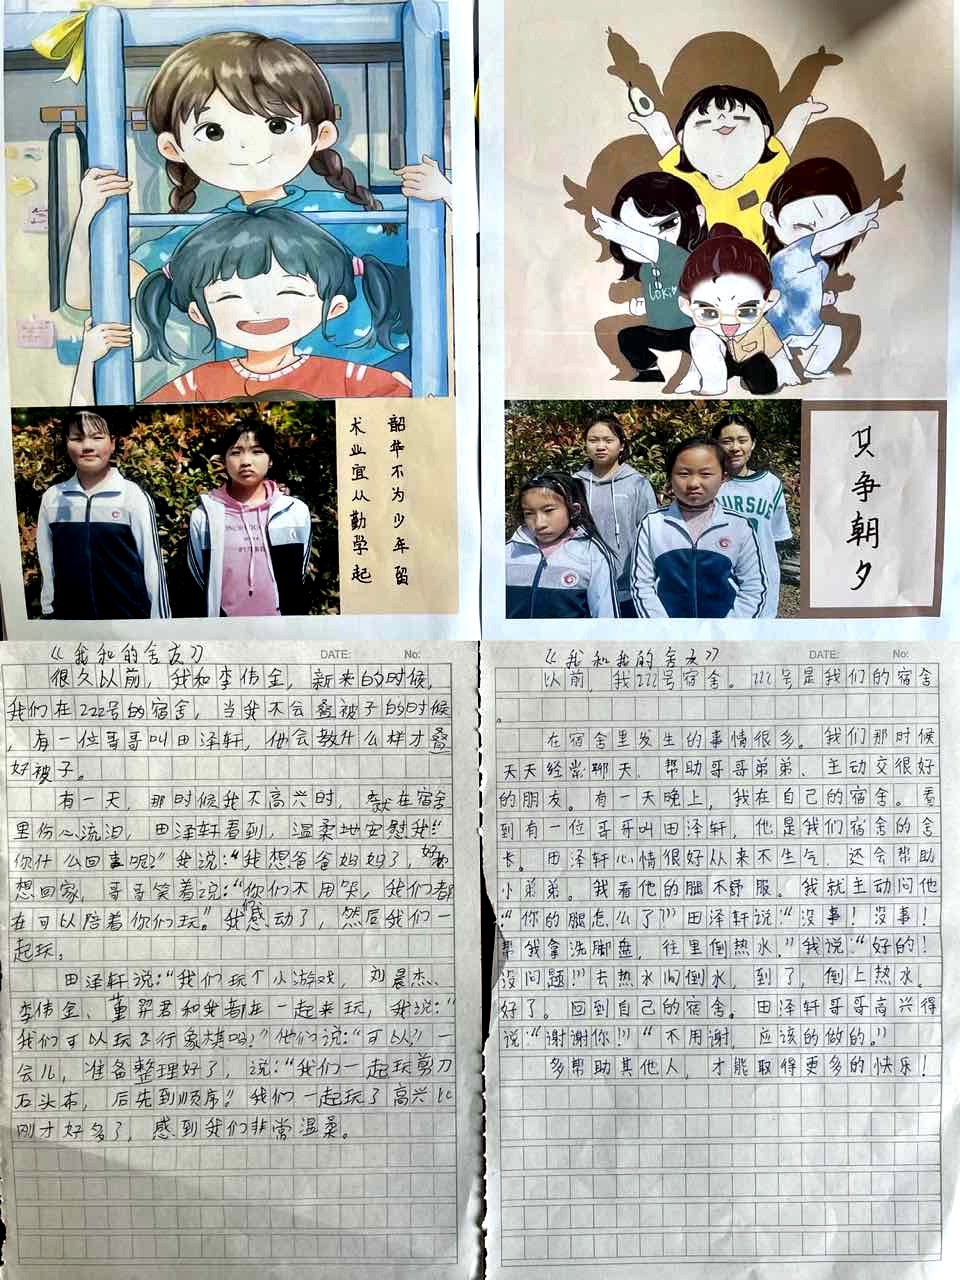 Loki
韶华不为少年留
术业宜从勤学起
只争朝夕
URSUE
《我和的舍友》
DATE: No:
很久以前，我和李伟金，新来的时候，
我们在222号的宿舍，当我不会叠被子的时候
，有一位哥哥叫田泽轩，他会教什么样才叠
好被子。
有一天，那时候我不高兴时，就在宿舍
里伤心流泪，田泽轩看到，温柔地安慰我：“
你什么回事呢？”我说：“我想爸爸妈妈了，好
想回家，哥哥笑着说：“你们不用哭，我们都
在可以陪着你们玩。”我感动了，然后我们一
起玩。
田泽轩说：“我们玩个小游戏，刘晨杰、
李伟金、董羿君和我都在一起来玩，我说：“
我们可以玩飞行象棋吗？”他们说：“可以！”一
会儿，准备整理好了，说：“我们一起玩剪刀
石头布，后先到顺序。”我们一起玩了高兴比
刚才好多了，感到我们非常温柔。
《我和我的舍友》
DATE: No:
以前，我222号宿舍。222号是我们的宿舍
。
在宿舍里发生的事情很多。我们那时候
天天经常聊天、帮助哥哥弟弟、主动交很好
的朋友。有一天晚上，我在自己的宿舍。看
到有一位哥哥叫田泽轩，他是我们宿舍的舍
长。田泽轩心情很好从来不生气，还会帮助
小弟弟。我看他的腿不舒服。我就主动问他
“你的腿怎么了？”田泽轩说：“没事！没事！
帮我拿洗脚盘，往里倒热水。”我说：“好的！
没问题！”去热水间倒水，到了，倒上热水。
好了。回到自己的宿舍。田泽轩哥哥高兴得
说：“谢谢你！”“不用谢，应该的做的。”
多帮助其他人，才能取得更多的快乐！